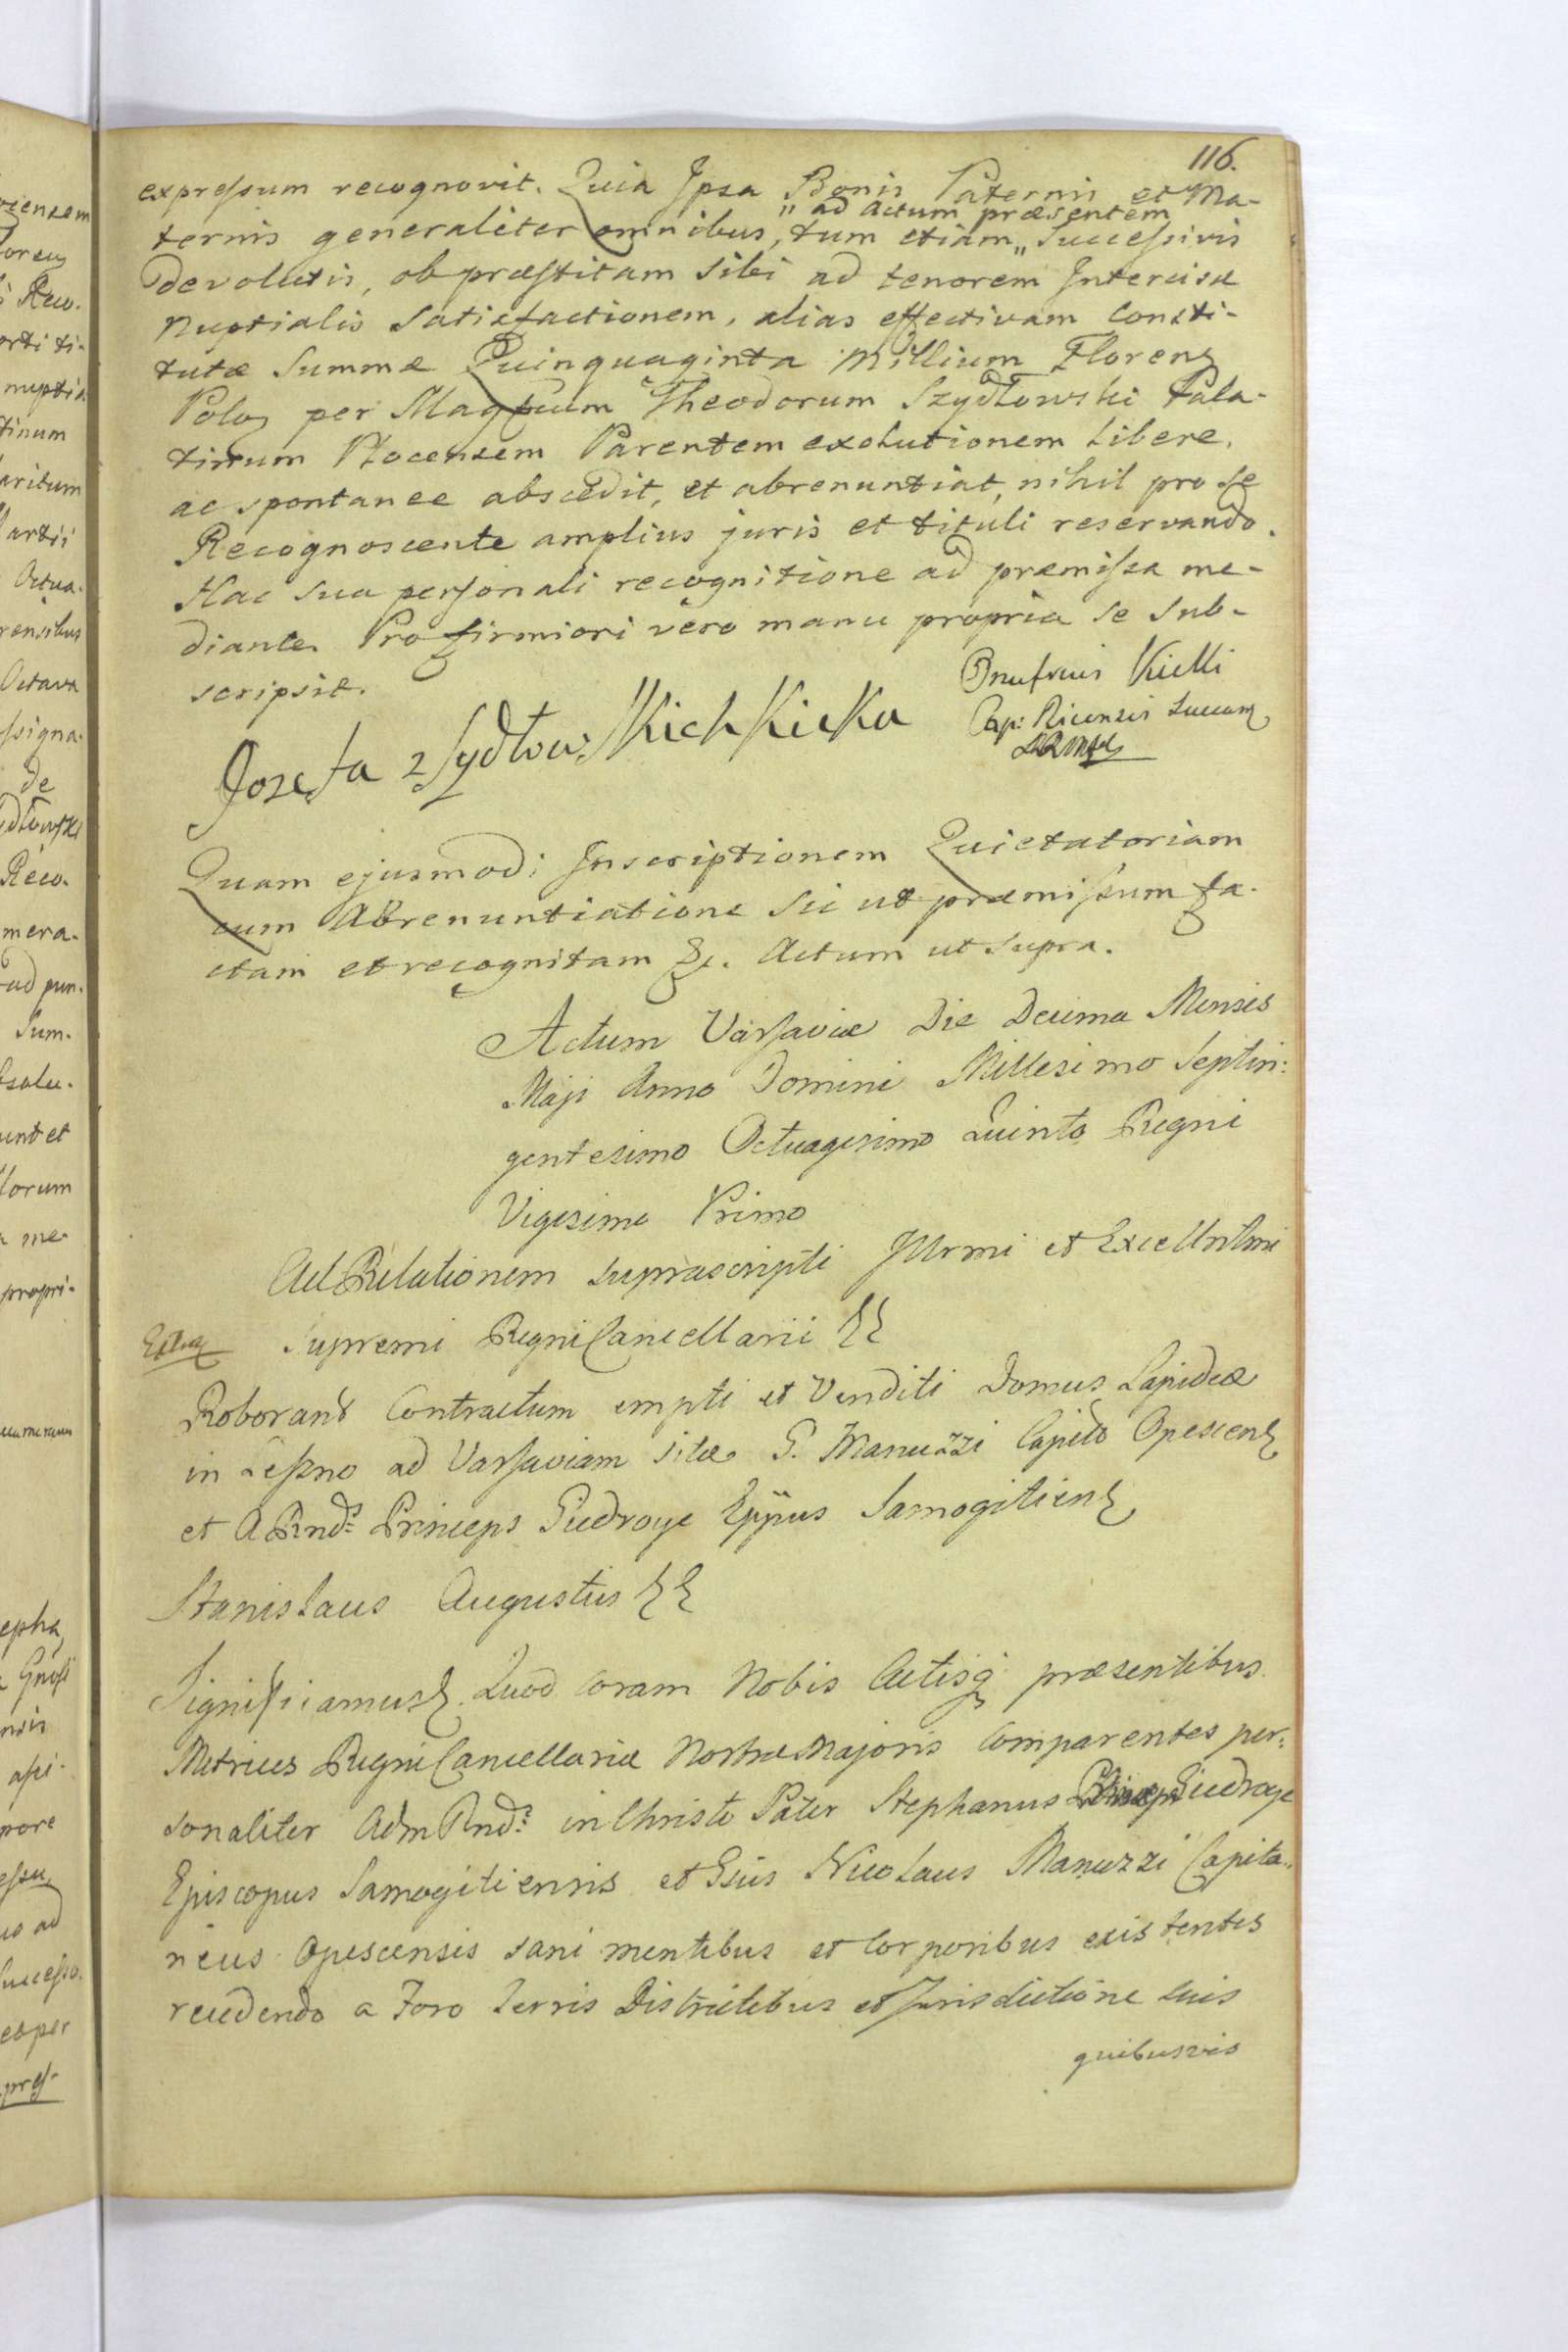 116.
expressum recognovit. Quia Ipsa Bonis Paternis et Ma-
" ad Actum præsentem
ternis generaliter omnibus, tum etiam " Successivis
devolutis, ob præstitam sibi ad tenorem Intercisæ
Nuptialis Satisfactionem, alias effectivam Consti-
tutæ Summæ Quinquaginta Millium Floren
Polo per Magcum Theodorum Szydłowski Pala-
tinum Plocensem Parentem exolutionem libere,
ac spontanee abscedit, et abrenuntiat, nihil pro se
Recognoscente amplius juris et tituli reservando.
Hac sua personali recognitione ad præmissa me-
diante. Pro firmiori vero manu propria se sub-
scripsit.
Onufrius Kicki
Cap: Ricensis Succam
Jozefa z Sydłowskich Kicka
Quam ejusmodi Inscriptionem Quietatoriam
cum Abrenuntiatione sic ut præmissum fa-
ctam et recognitam &c. Actum ut supra.
Actum Varsaviæ Die Decima Mensis
Maji Anno Domini Millesimo Septin:
gentesimo Octuagesimo Quinto Regni
Vigesimo Primo
Ad Relationem suprascripti Illrmi et Excellntmi
Supremi Regni Cancellarii &&
Roborant Contractum empti et Venditi Domus Lapideæ
in Leszno ad Varsaviam sitæ G. Manuzzi Capito Opescen
et A Rnds Princeps Giedroyc Eppus Samogitien
Stanislaus Augustus &&
Significamus. Quod coram Nobis Actisq præsentibus
Metrices Regni Cancellariæ Nostræ Majoris Comparentes per:
sonaliter Adm Rnds in Christo Pater Stephanus Princeps Giedroyc
Episcopus Samogitiensis et Gsus Nicolaus Manuzzi Capita:
neus Opescensis sani mentibus et Corporibus existentes
recedendo a Foro Terris Districtibus et Jurisdictione suis
quibusvis